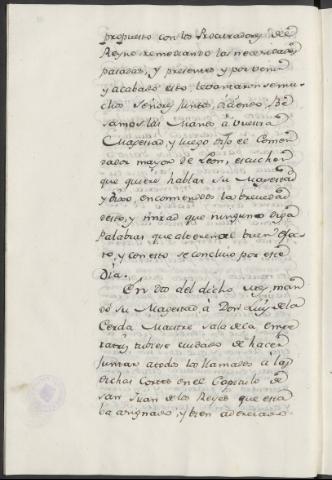 propuesto con los Procuradores del
Reyno remediando las necesidades
pasadas, y presentes y por venir
y acabado esto, levantaronse mu-
chos señores juntos, diciendo Be-
samos las Manos á Vuestra
Magestad y luego dijo el Comen-
dador mayor de Leon, escuchen
que quiere hablar su Magestad
y Dixo, encomiendoos la brevedad
desto, y mirad que ninguno diga
Palabras que alteren el buen efec-
to, y con esto se concluio por este
Dia.
En dos del dicho mes man-
dó su Magestad á Don Luis de la
Cerda Maestre sala de la Empe-
ratriz tubiese cuidado de hacer
juntar a todos los llamados á las
dichas Cortes en el Capitulo de
San Juan de los Reyes que esta-
ba asignado, y bien aderezado